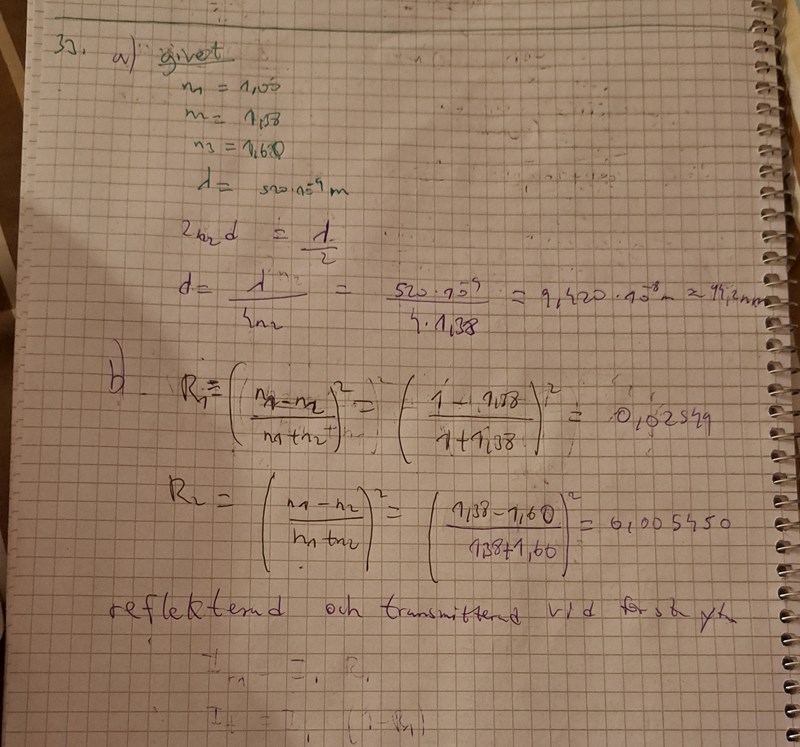 33. a) givet
n₁ = 1,00
n₂ = 1,38
n₃ = 1,60
λ = 520·10⁻⁹ m
2n₂d = λ/2
d = λ/4n₂ = 520·10⁻⁹/4·1,38 = 9,420·10⁻⁸ m ≈ 94,2nm
b) R₁ = ((n₁-n₂)/(n₁+n₂))² = ((1-1,38)/(1+1,38))² = 0,02549
R₂ = ((n₁-n₂)/(n₁+n₂))² = ((1,38-1,60)/(1,38+1,60))² = 0,005450
reflekterad och transmitterad vid första yta
I_r₁ = I₁ R₁
I_t = I₁ (1-R₁)